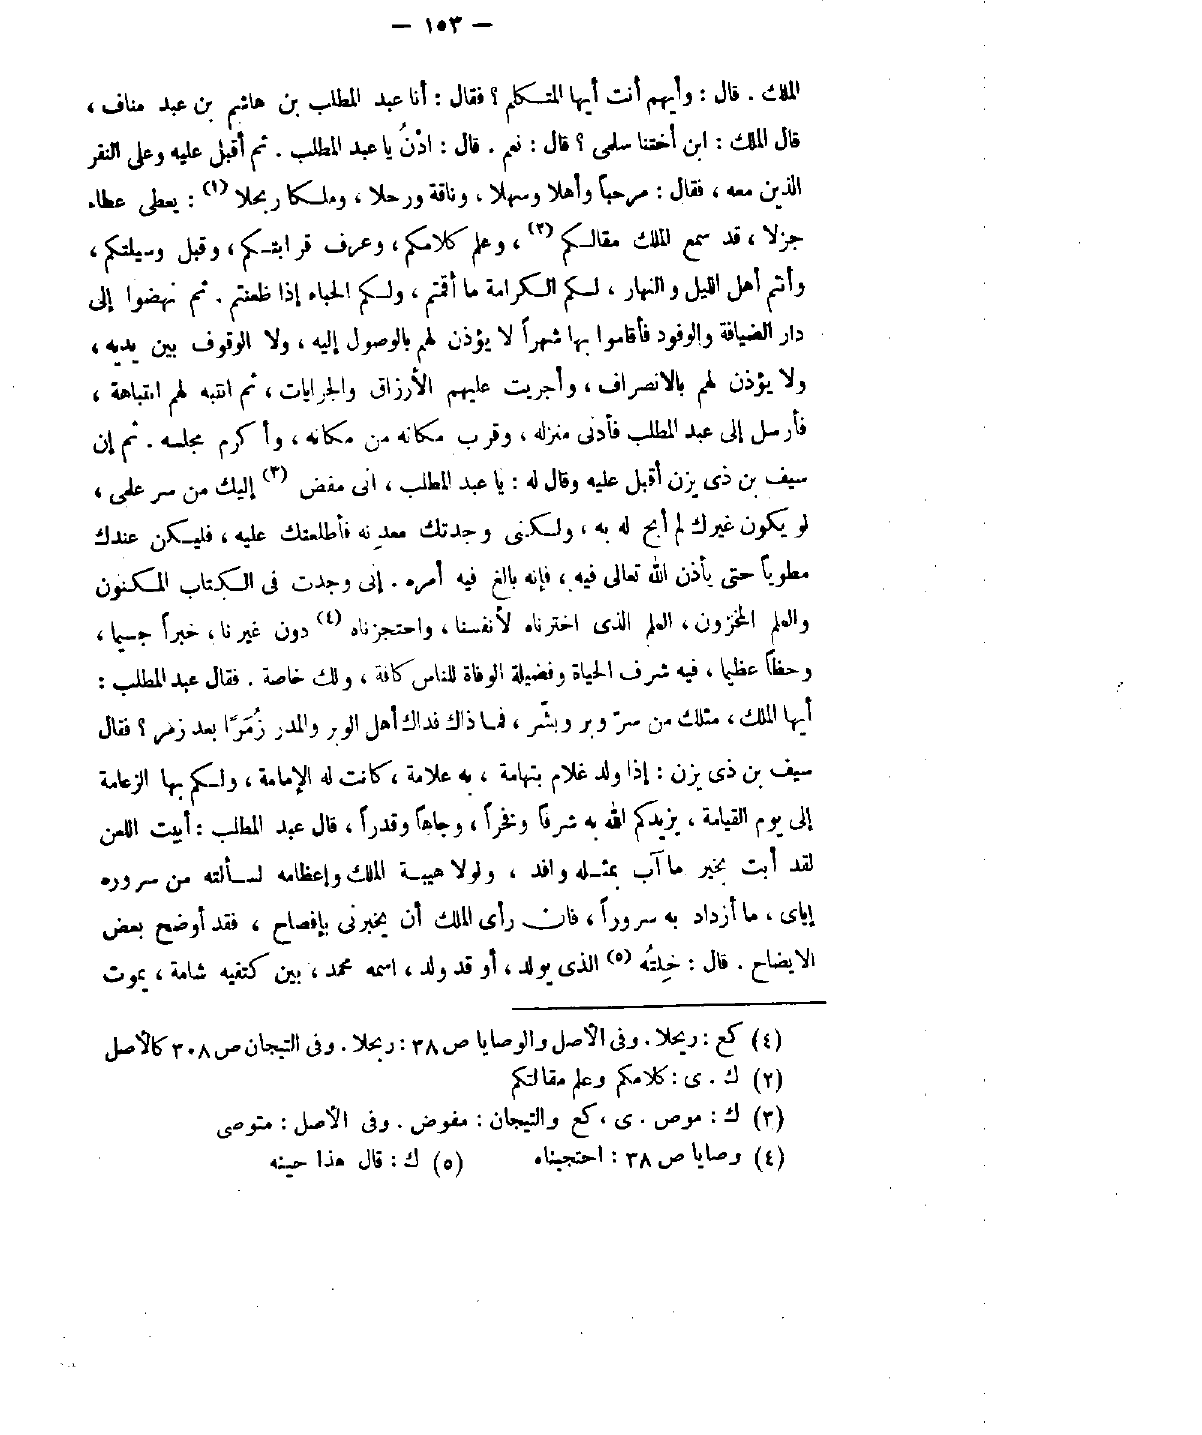 — ١٥٣ —
الملك . قال : وأيهم أنت أيها المتكلم ؟ فقال : أنا عبد المطلب بن هاشم بن عبد مناف ،
قال الملك : ابن أختنا سلمى ؟ قال : نعم . قال : ادْنُ يا عبد المطلب . ثم أقبل عليه وعلى النفر
الذين معه ، فقال : مرحباً وأهلا وسهلا ، وناقة ورحلا ، وملكا ربحلا (١) : يعطى عطاء
جزلا ، قد سمع الملك مقالكم (٢) ، وعلم كلامكم ، وعرف قرابتكم ، وقبل وسيلتكم ،
وأنتم أهل الليل والنهار ، لكم الكرامة ما أقمتم ، ولكم الحباء إذا ظعنتم . ثم نهضوا إلى
دار الضيافة والوفود فأقاموا بها شهراً لا يؤذن لهم بالوصول إليه ، ولا الوقوف بين يديه ،
ولا يؤذن لهم بالانصراف ، وأجريت عليهم الأرزاق والجرايات ، ثم انتبه لهم انتباهة ،
فأرسل إلى عبد المطلب فأدنى منزله ، وقرب مكانه من مكانه ، وأكرم مجلسه . ثم إن
سيف بن ذى يزن أقبل عليه وقال له : يا عبد المطلب ، انى مفض (٣) إليك من سر علمى ،
لو يكون غيرك لم أبح له به ، ولكنى وجدتك معدنه فأطلعتك عليه ، فليكن عندك
مطوياً حتى يأذن الله تعالى فيه ، فإنه بالغ فيه أمره . إنى وجدت فى الكتاب المكنون
والعلم المخزون ، العلم الذى اخترناه لأنفسنا ، واحتجزناه (٤) دون غيرنا ، خبراً جسيما ،
وحظاً عظيما ، فيه شرف الحياة وفضيلة الوفاة للناس كافة ، ولك خاصة . فقال عبد المطلب :
أيها الملك ، مثلك من سرّ وبر وبشّر ، فما ذاك فداك أهل الوبر والمدر زُمَرًا بعد زمر ؟ فقال
سيف بن ذى يزن : إذا ولد غلام بتهامة ، به علامة ، كانت له الإمامة ، ولكم بها الزعامة
إلى يوم القيامة ، يزيدكم الله به شرفاً وفخراً ، وجاهاً وقدراً ، قال عبد المطلب : أبيت اللعن
لقد أبت بخبر ما آب بمثله وافد ، ولولا هيبة الملك وإعظامه لسألته من سروره
إياى ، ما أزداد به سروراً ، فان رأى الملك أن يخبرنى بإفصاح ، فقد أوضح بعض
الايضاح . قال : خِلتُه (٥) الذى يولد ، أو قد ولد ، اسمه محمد ، بين كتفيه شامة ، يموت
(٤) كع : ريحلا . وفى الأصل والوصايا ص ٣٨ : ربحلا . وفى التيجان ص ٣٠٨ كالأصل
(٢) ك . ى : كلامكم وعلم مقالتكم
(٣) ك : موص . ى ، كع والتيجان : مفوض . وفى الأصل : متوصى
(٤) وصايا ص ٣٨ : احتجبناه (٥) ك : قال هذا حينه